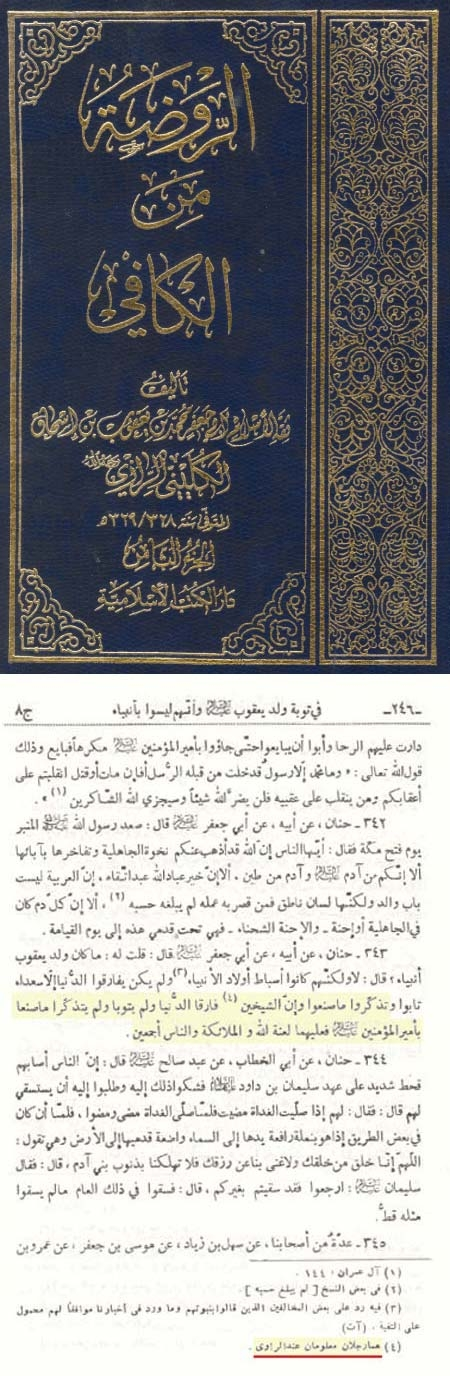 الروضة
من
الكافي
تأليف
ثقة الإسلام أبي جعفر محمد بن يعقوب بن إسحاق
الكليني الرازي رحمه الله
المتوفى سنة ٣٢٨/٣٢٩ هـ
الجزء الثامن
دار الكتب الإسلامية
-٢٤٦- في توبة ولد يعقوب عليه السلام وأنهم ليسوا بأنبياء ج٨
دارت عليهم الرحا وأبوا أن يبايعوا حتى جاؤوا بأمير المؤمنين عليه السلام مكرهاً فبايع وذلك
قول الله تعالى : « وما محمد إلا رسول قد خلت من قبله الرسل أفإن مات أو قتل انقلبتم على
أعقابكم ومن ينقلب على عقبيه فلن يضر الله شيئاً وسيجزي الله الشاكرين (١) » .
٣٤٢ - حنان ، عن أبيه ، عن أبي جعفر عليه السلام قال : صعد رسول الله صلى الله عليه وآله المنبر
يوم فتح مكة فقال : أيها الناس إن الله قد أذهب عنكم نخوة الجاهلية وتفاخرها بآبائها
ألا إنكم من آدم عليه السلام و آدم من طين ، ألا إن خير عباد الله عبد اتقاه ، إن العربية ليست
باب والد ولكنها لسان ناطق فمن قصر به عمله لم يبلغه حسبه (٢) ، ألا إن كل دم كان
في الجاهلية أو إحنة ـ والإحنة الشحناء ـ فهي تحت قدمي هذه إلى يوم القيامة .
٣٤٣ - حنان ، عن أبيه ، عن أبي جعفر عليه السلام قال : قلت له : ما كان ولد يعقوب
أنبياء ؟ قال : لا ولكنهم كانوا أسباط أولاد الأنبياء (٣) ولم يكن يفارقوا الدنيا إلا سعداء
تابوا وتذكروا ما صنعوا وإن الشيخين (٤) فارقا الدنيا ولم يتوبا ولم يتذكرا ما صنعا
بأمير المؤمنين عليه السلام فعليهما لعنة الله و الملائكة والناس أجمعين .
٣٤٤ - حنان ، عن أبي الخطاب ، عن عبد صالح عليه السلام قال : إن الناس أصابهم
قحط شديد على عهد سليمان بن داود عليهما السلام فشكوا ذلك إليه وطلبوا إليه أن يستسقي
لهم قال : فقال : لهم إذا صليت الغداة مضيت فلما صلى الغداة مضى ومضوا ، فلما أن كان
في بعض الطريق إذا هو بنملة رافعة يدها إلى السماء واضعة قدميها إلى الأرض وهي تقول :
اللهم إنا خلق من خلقك ولا غنى بنا عن رزقك فلا تهلكنا بذنوب بني آدم ، قال : فقال
سليمان عليه السلام : ارجعوا فقد سقيتم بغيركم ، قال : فسقوا في ذلك العام مالم يسقوا
مثله قط .
٣٤٥ - عدة من أصحابنا ، عن سهل بن زياد ، عن موسى بن جعفر ، عن عمرو بن
(١) آل عمران : ١٤٤ .
(٢) في بعض النسخ [ لم يبلغ حسبه ] .
(٣) فيه رد على بعض المخالفين الذين قالوا بنبوتهم وما ورد في أخبارنا موافقاً لهم محمول
على التقية . (آت)
(٤) هما رجلان معلومان عند الراوى .